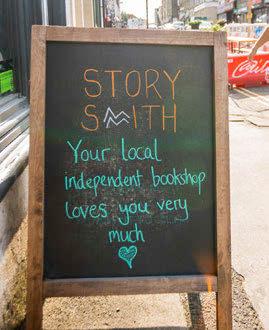 STORY
SMITH
Your local
independent bookshop
loves you very
much
Coca-Cola